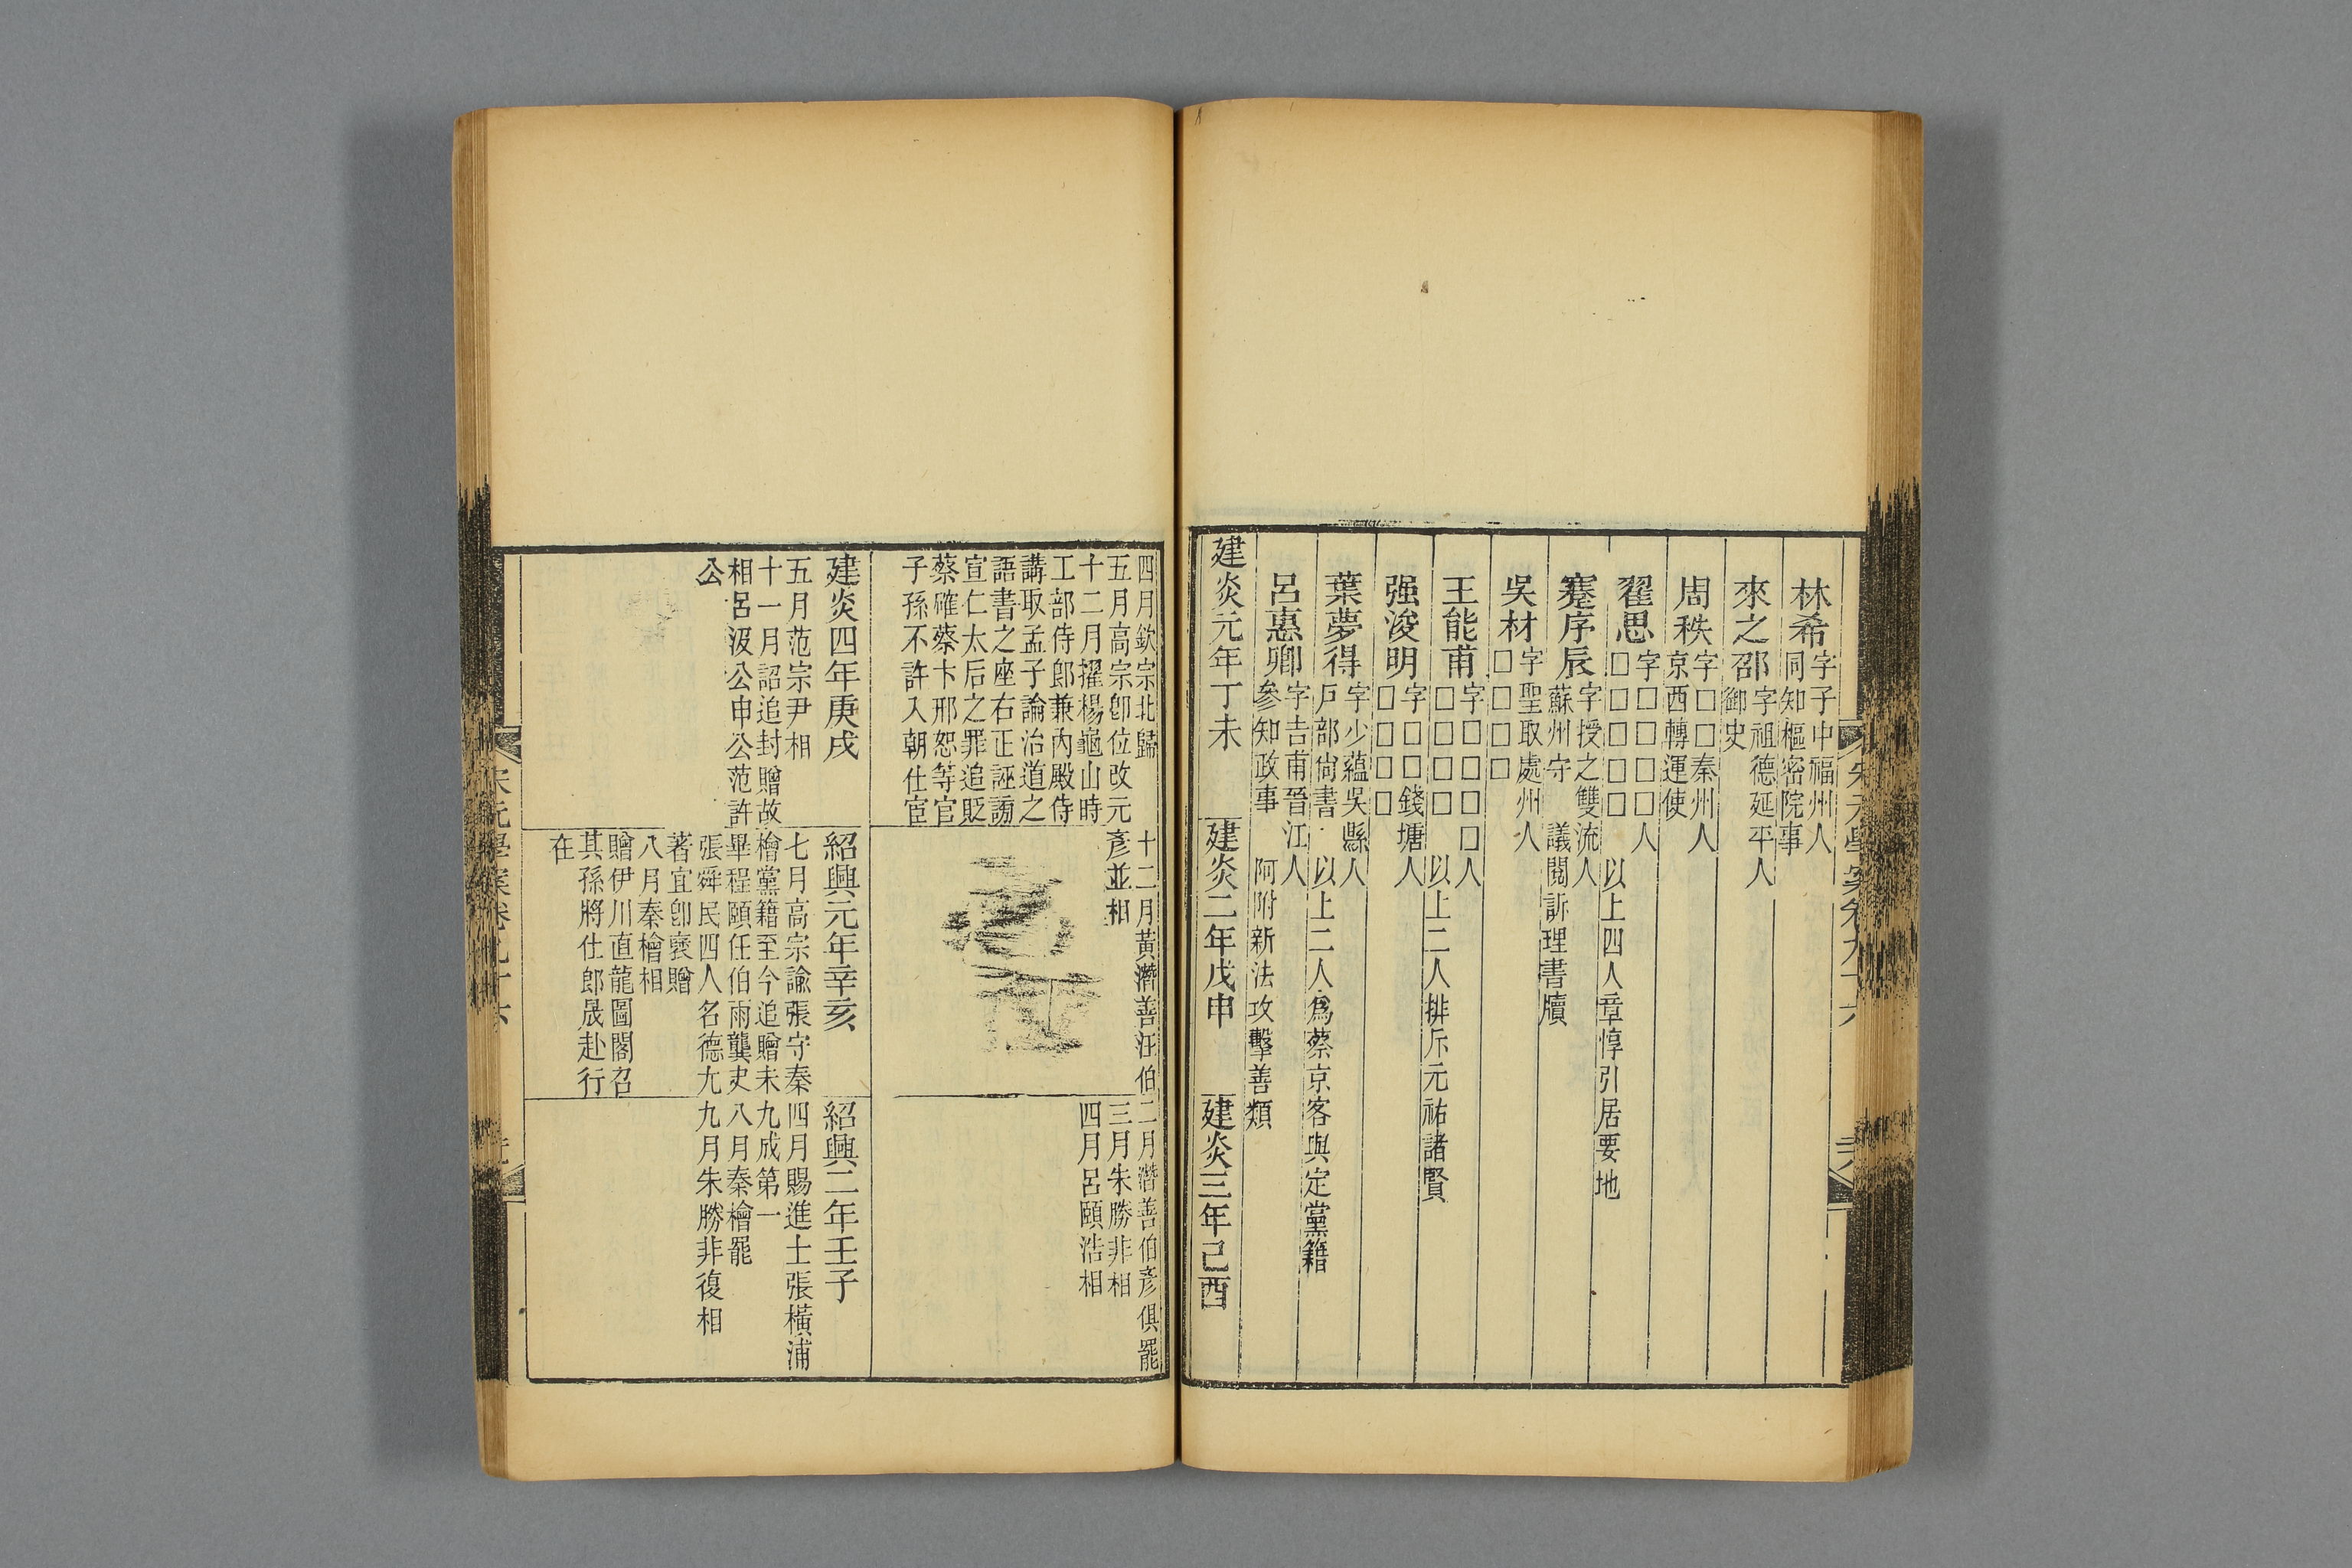 林希字子中福州人
同知樞密院事
來之邵字祖德延平人
御史
周秩字□□秦州人
京西轉運使
翟思字□□□□人
□□□□□ 以上四人章惇引居要地
蹇序辰字授之雙流人
蘇州守 議閱訴理書牘
吳材字聖取處州人
□□□□
王能甫字□□□□□人
□□□□ 以上二人排斥元祐諸賢
强浚明字□□錢塘人
□□□□
葉夢得字少蘊吳縣人
戸部尙書 以上二人爲蔡京客與定黨籍
呂惠卿字吉甫晉江人
參知政事 阿附新法攻擊善類
建炎元年丁未
建炎二年戊申
建炎三年己酉
宋元學案卷九十六
四月欽宗北歸
五月高宗卽位改元
十二月擢楊龜山時
工部侍郎兼內殿侍
講取孟子論治道之
語書之座右正誣謗
宣仁太后之罪追貶
蔡確蔡卞邢恕等官
子孫不許入朝仕宦
十二月黃潛善汪伯
彥並相
二月潛善伯彥俱罷
三月朱勝非相
四月呂頤浩相
建炎四年庚戌
五月范宗尹相
十一月詔追封贈故
相呂汲公申公范許
公
紹興元年辛亥
七月高宗諭張守秦
檜黨籍至今追贈未
畢程頤任伯雨龔夬
張舜民四人名德尤
著宜卽襃贈
八月秦檜相
贈伊川直龍圖閣召
其孫將仕郎晟赴行
在
紹興二年壬子
四月賜進士張橫浦
九成第一
八月秦檜罷
九月朱勝非復相
宋元學案卷九十六